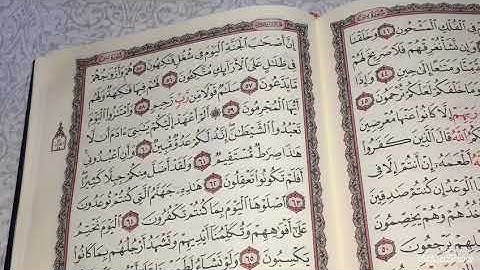 فِى ٱلْفُلْكِ ٱلْمَشْحُونِ ٤١ وَخَلَقْنَا
وَإِن نَّشَأْ نُغْرِقْهُمْ فَلَا صَرِيخَ لَهُمْ
مِّنَّا وَمَتَٰعًا إِلَىٰ حِينٍ ٤٤ وَإِذَا
وَمَا خَلْفَكُمْ لَعَلَّكُمْ تُرْحَمُونَ ٤٥
رَبِّهِمْ إِلَّا كَانُوا۟ عَنْهَا مُعْرِضِينَ
ٱللَّهُ قَالَ ٱلَّذِينَ كَفَرُوا۟
ٱللَّهُ أَطْعَمَهُۥٓ إِنْ أَنتُمْ إِلَّا فِى
ٱلْوَعْدُ إِن كُنتُمْ صَٰدِقِينَ
وَهُمْ يَخِصِّمُونَ
يَرْجِعُونَ ٥٠
إِنَّ أَصْحَٰبَ ٱلْجَنَّةِ ٱلْيَوْمَ فِى شُغُلٍ فَٰكِهُونَ ٥٥ هُمْ وَأَزْوَٰجُهُمْ
فِى ظِلَٰلٍ عَلَى ٱلْأَرَآئِكِ مُتَّكِـُٔونَ ٥٦ لَهُمْ فِيهَا فَٰكِهَةٌ وَلَهُم
مَّا يَدَّعُونَ ٥٧ سَلَٰمٌ قَوْلًا مِّن رَّبٍّ رَّحِيمٍ ٥٨ وَٱمْتَٰزُوا۟ ٱلْيَوْمَ
أَيُّهَا ٱلْمُجْرِمُونَ ٥٩ أَلَمْ أَعْهَدْ إِلَيْكُمْ يَٰبَنِىٓ ءَادَمَ أَن لَّا
تَعْبُدُوا۟ ٱلشَّيْطَٰنَ إِنَّهُۥ لَكُمْ عَدُوٌّ مُّبِينٌ ٦٠ وَأَنِ ٱعْبُدُونِى
هَٰذَا صِرَٰطٌ مُّسْتَقِيمٌ ٦١ وَلَقَدْ أَضَلَّ مِنكُمْ جِبِلًّا كَثِيرًا
أَفَلَمْ تَكُونُوا۟ تَعْقِلُونَ ٦٢ هَٰذِهِۦ جَهَنَّمُ ٱلَّتِى كُنتُمْ تُوعَدُونَ
٦٣ ٱصْلَوْهَا ٱلْيَوْمَ بِمَا كُنتُمْ تَكْفُرُونَ ٦٤ ٱلْيَوْمَ نَخْتِمُ
عَلَىٰٓ أَفْوَٰهِهِمْ وَتُكَلِّمُنَآ أَيْدِيهِمْ وَتَشْهَدُ أَرْجُلُهُم بِمَا كَانُوا۟
يَكْسِبُونَ ٦٥ وَلَوْ نَشَآءُ